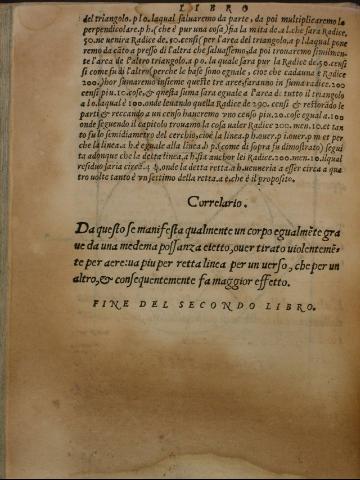 LIBRO
del triangolo. p l o. laqual saluaremo da parte, da poi multiplicaremo la
perpendicolare. p h. (che è pur una cosa) sia la mita de. a l. che sara Radice.
50. ne uenira Radice de. 50. censi per l'area del triangolo. a p l. la qual pone
remo da cāto a presso di l'altra che saluassemo, da poi trouaremo similmen-
te l'area de l'altro triangolo. a p o. la quale sara pur la Radice de. 50. censi
si come fu di l'altro (perche le base sono equale, cioe che cadauna è Radice
200.) hor sumaremo insieme queste tre aree, faranno in suma radice. 200
censi piu. 10. cose, & questa suma sara eguale a l'area di tutto il triangolo
a l o. laqual è 100. onde leuando quella Radice de 290. censi & restorādo le
parti & reccando a un censo haueremo vno censo piu. 20. cose egual a. 100
onde seguendo il capitolo trouamo la cosa ualer Radice 200. men. 10. et tan
to fu lo semidiametro del cerchio, cioè la linea. p h. ouer p i. ouer. p m et per
che la linea. a h. è eguale alla linea. h p. (come di sopra fu dimostrato) segui
ta adonque che la detta linea. a h. sia anchor lei Radice. 200. men. 10. ilqual
residuo saria circa. 4 1/7, onde la detta retta. a h. ueneria a esser circa a qua
tro volte tanto è vn settimo della retta. a e. che è il proposito.
Correlario.
Da questo se manifesta qualmente un corpo egualmēte gra
ue da una medema possanza eietto, ouer tirato violentemē-
te per aere: ua piu per retta linea per un uerso, che per un
altro, & consequentemente fa maggior effetto.
FINE DEL SECONDO LIBRO.